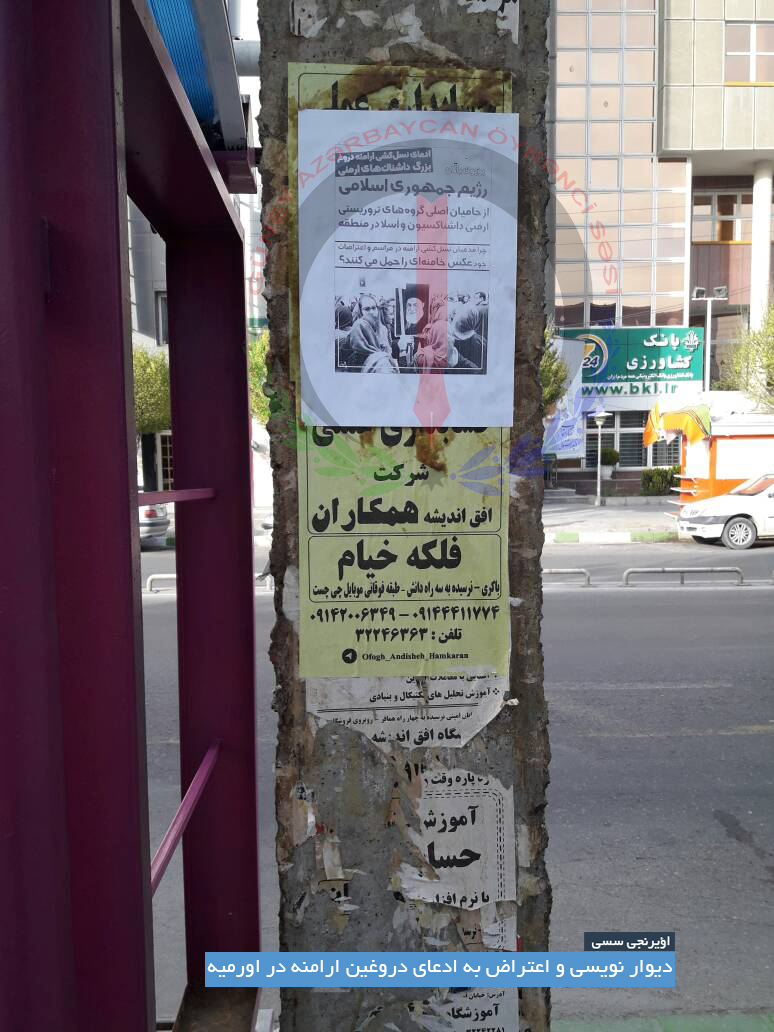 حسابداری عملی
GÜNEY AZƏRBAYCAN ÖYRƏNCİ SƏSİ
ادعای نسل‌کشی ارامنه دروغ
بزرگ داشناک‌های ارمنی
رژیم جمهوری اسلامی
از حامیان اصلی گروه‌های تروریستی
ارمنی داشناکسیون و آسالا در منطقه
چرا مدعیان نسل کشی ارامنه در مراسم و اعتراضات
خود عکس خامنه‌ای را حمل می کنند؟
شرکت
افق اندیشه همکاران
فلکه خیام
باکری - نرسیده به سه راه دانش - طبقه فوقانی موبایل چی چست
۰۹۱۴۴۴۱۱۷۷۴ - ۰۹۱۴۲۰۰۶۳۴۹
تلفن : ۳۲۲۴۶۳۶۳
Ofogh_Andisheh_Hamkaran
آموزش تحلیل های تکنیکال و بنیادی
نرسیده به چهار راه همافر - روبروی فروشگاه
گاه افق اندیشه
پاره وقت
آموزش
حسا
با نرم افزار
نرسیا
آدرس: خیابان
آموزشگا
۳۲۲۴۲۲۸۱
24
بانک
کشاورزی
www.bki.ir
اؤیرنجی سسی
دیوار نویسی و اعتراض به ادعای دروغین ارامنه در اورمیه